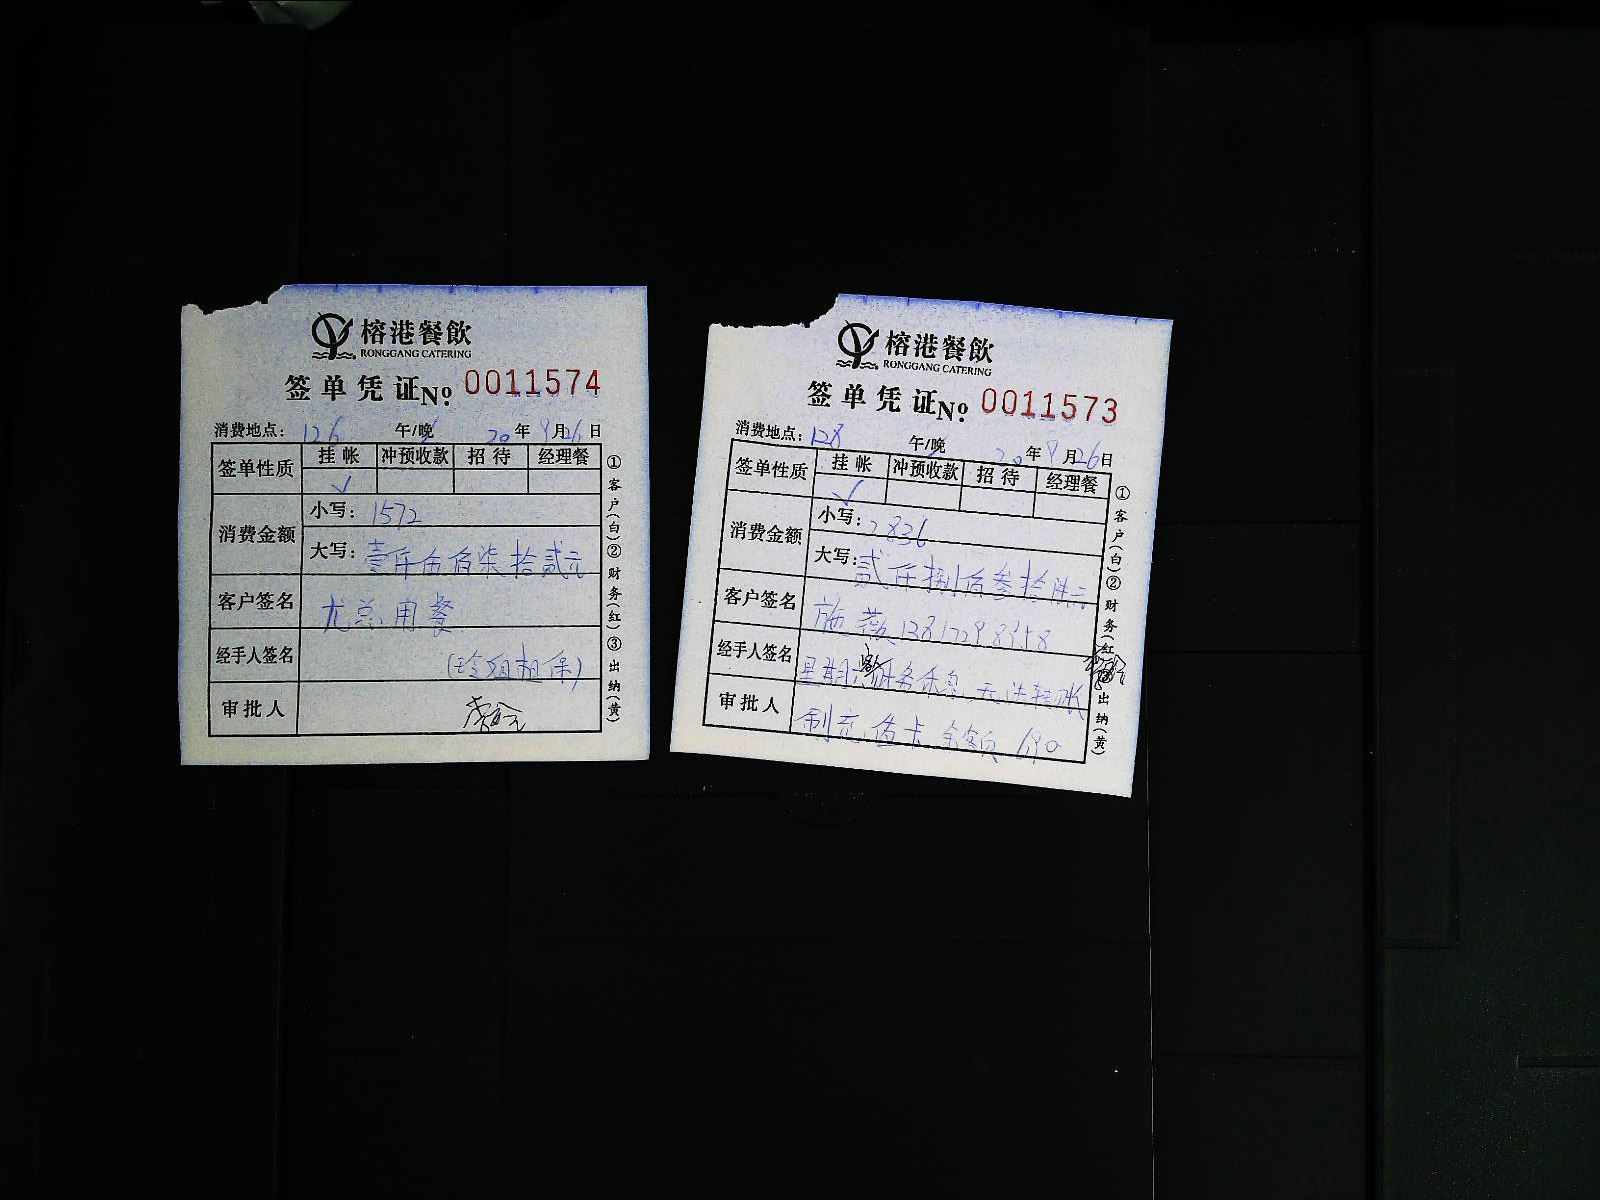 榕港餐飲
RONGGANG CATERING
签单凭证No: 0011574
消费地点: 126 午/晚 20 年 9 月 26 日
签单性质 挂帐 冲预收款 招待 经理餐
✓
消费金额 小写: 1572
大写: 壹仟伍佰柒拾贰元
客户签名 尤总用餐
经手人签名 担保)
审批人
①客户(白)②财务(红)③出纳(黄)
榕港餐飲
RONGGANG CATERING
签单凭证No: 0011573
消费地点: 128 午/晚 20 年 9 月 26 日
签单性质 挂帐 冲预收款 招待 经理餐
✓
消费金额 小写: 2836
大写: 贰仟捌佰叁拾陆元
客户签名 施薇
经手人签名 星期六财务休息 无法转账
审批人 制充值卡 余额
①客户(白)②财务(红) 出纳(黄)